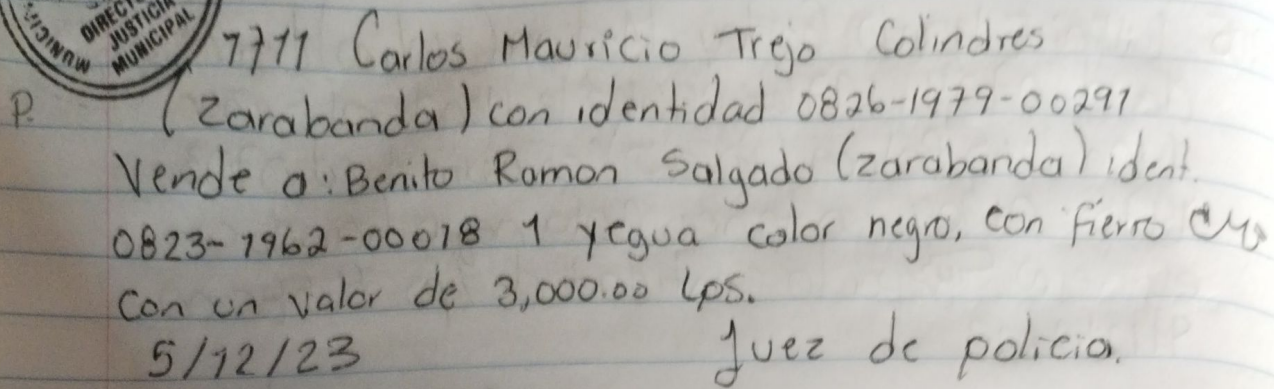 DIRECC
JUSTICIA
MUNICIPAL
7711 Carlos Mauricio Trejo Colindres
P. (Zarabanda) con identidad 0826-1979-00291
Vende a: Benito Ramon Salgado (zarabanda) ident.
0823-1962-00018 1 yegua color negro, con fierro
con un valor de 3,000.00 Lps.
5/12/23 Juez de policia.